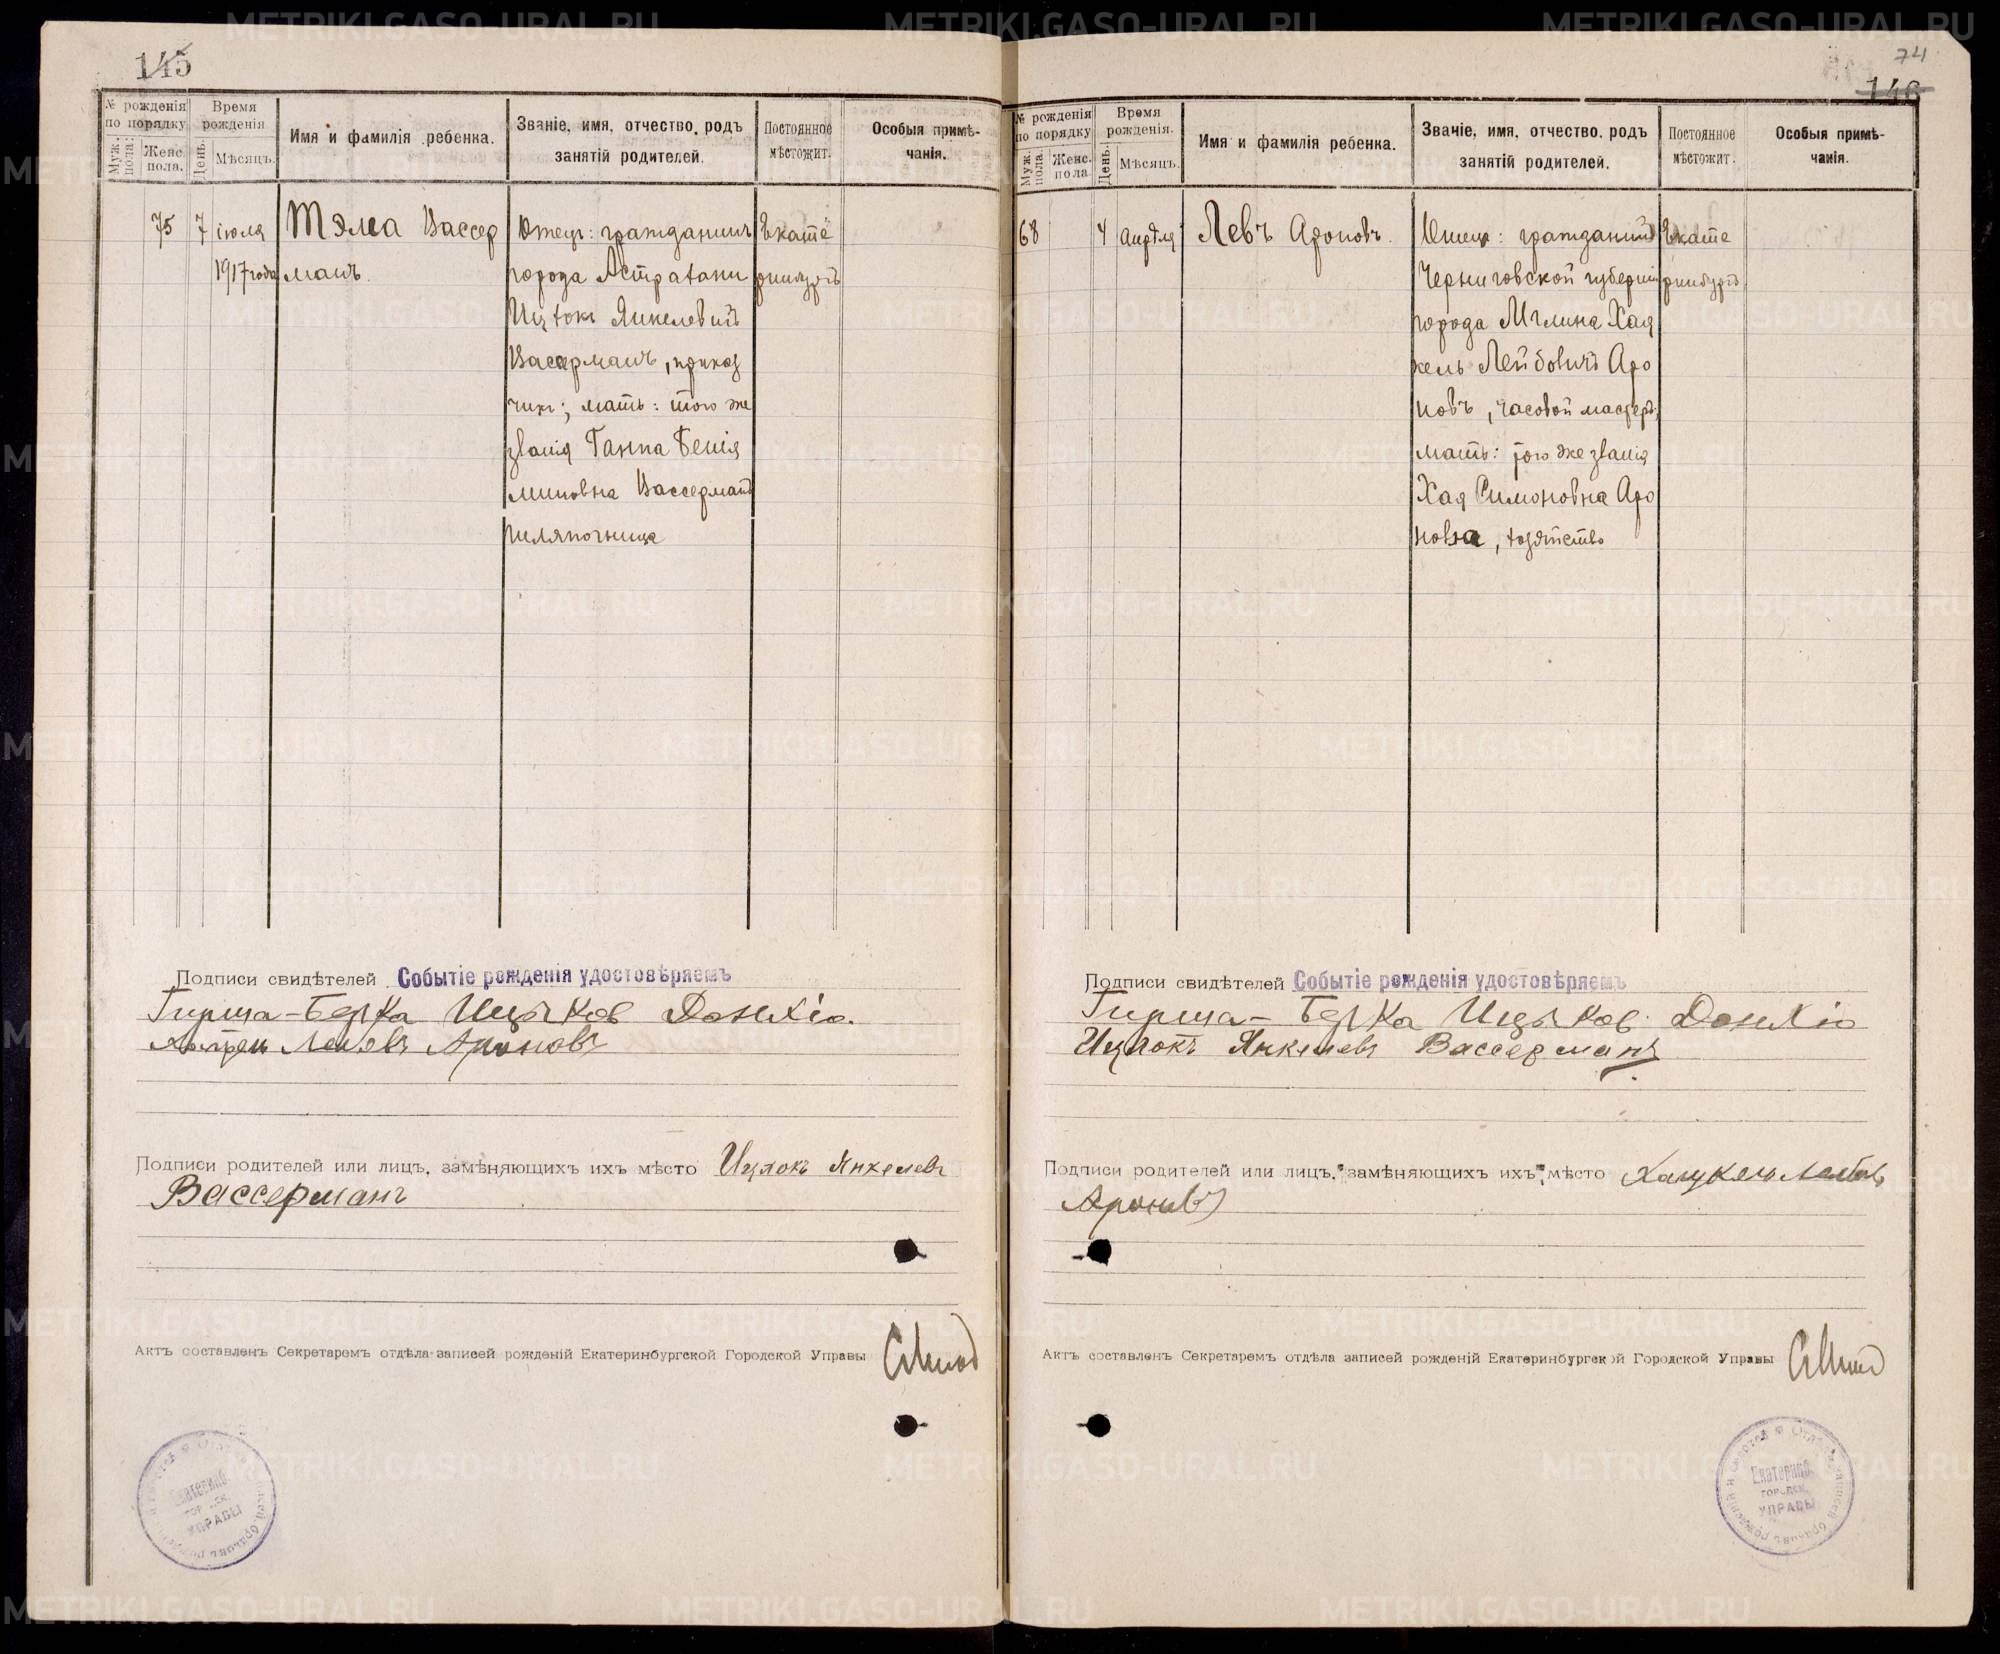 145
№ рожденія по порядку
Муж. пола.
Женс. пола.
Время рожденія
День.
Мѣсяцъ.
Имя и фамилія ребенка.
Званіе, имя, отчество, родъ занятій родителей.
Постоянное мѣстожит.
Особыя примѣчанія.
75
7
іюля
1917 года
Тэма Вассер
манъ.
Отецъ: гражданинъ
города Астрахани
Ицхокъ Янкелевичъ
Вассерманъ, приказ
чикъ; мать: того же
званія Ганна Бенія
миновна Вассерманъ
шляпочница
Екате
ринбургъ
Подписи свидѣтелей Событіе рожденія удостовѣряемъ
Гирша-Берка Ицыков Донхін
Лейбовъ Ароновъ
Подписи родителей или лицъ, замѣняющихъ ихъ мѣсто Ицхокъ Янкелевъ
Вассерманъ
Актъ составленъ Секретаремъ отдѣла записей рожденій Екатеринбургской Городской Управы
Екатеринб.
УПРАВЫ
74
146
№ рожденія по порядку
Муж. пола.
Женс. пола
Время рожденія.
День.
Мѣсяцъ.
Имя и фамилія ребенка.
Званіе, имя, отчество, родъ занятій родителей.
Постоянное мѣстожит.
Особыя примѣчанія.
68
4
апрѣля
Левъ Ароновъ.
Отецъ: гражданинъ
Черниговской губерніи
города Мглина Хац
кель Лейбовичъ Аро
новъ, часовой мастеръ;
мать: того же званія
Хая Симоновна Аро
нова, хозяйство
Екате
ринбургъ
Подписи свидѣтелей Событіе рожденія удостовѣряемъ
Гирша-Берка Ицыков Донхін
Ицхокъ Янкелевъ Вассерманъ
Подписи родителей или лицъ, замѣняющихъ ихъ мѣсто Хацкель Лейбовъ
Ароновъ
Актъ составленъ Секретаремъ отдѣла записей рожденій Екатеринбургской Городской Управы
Екатеринб.
ГОРОДСК.
УПРАВЫ
METRIKI.GASO-URAL.RU